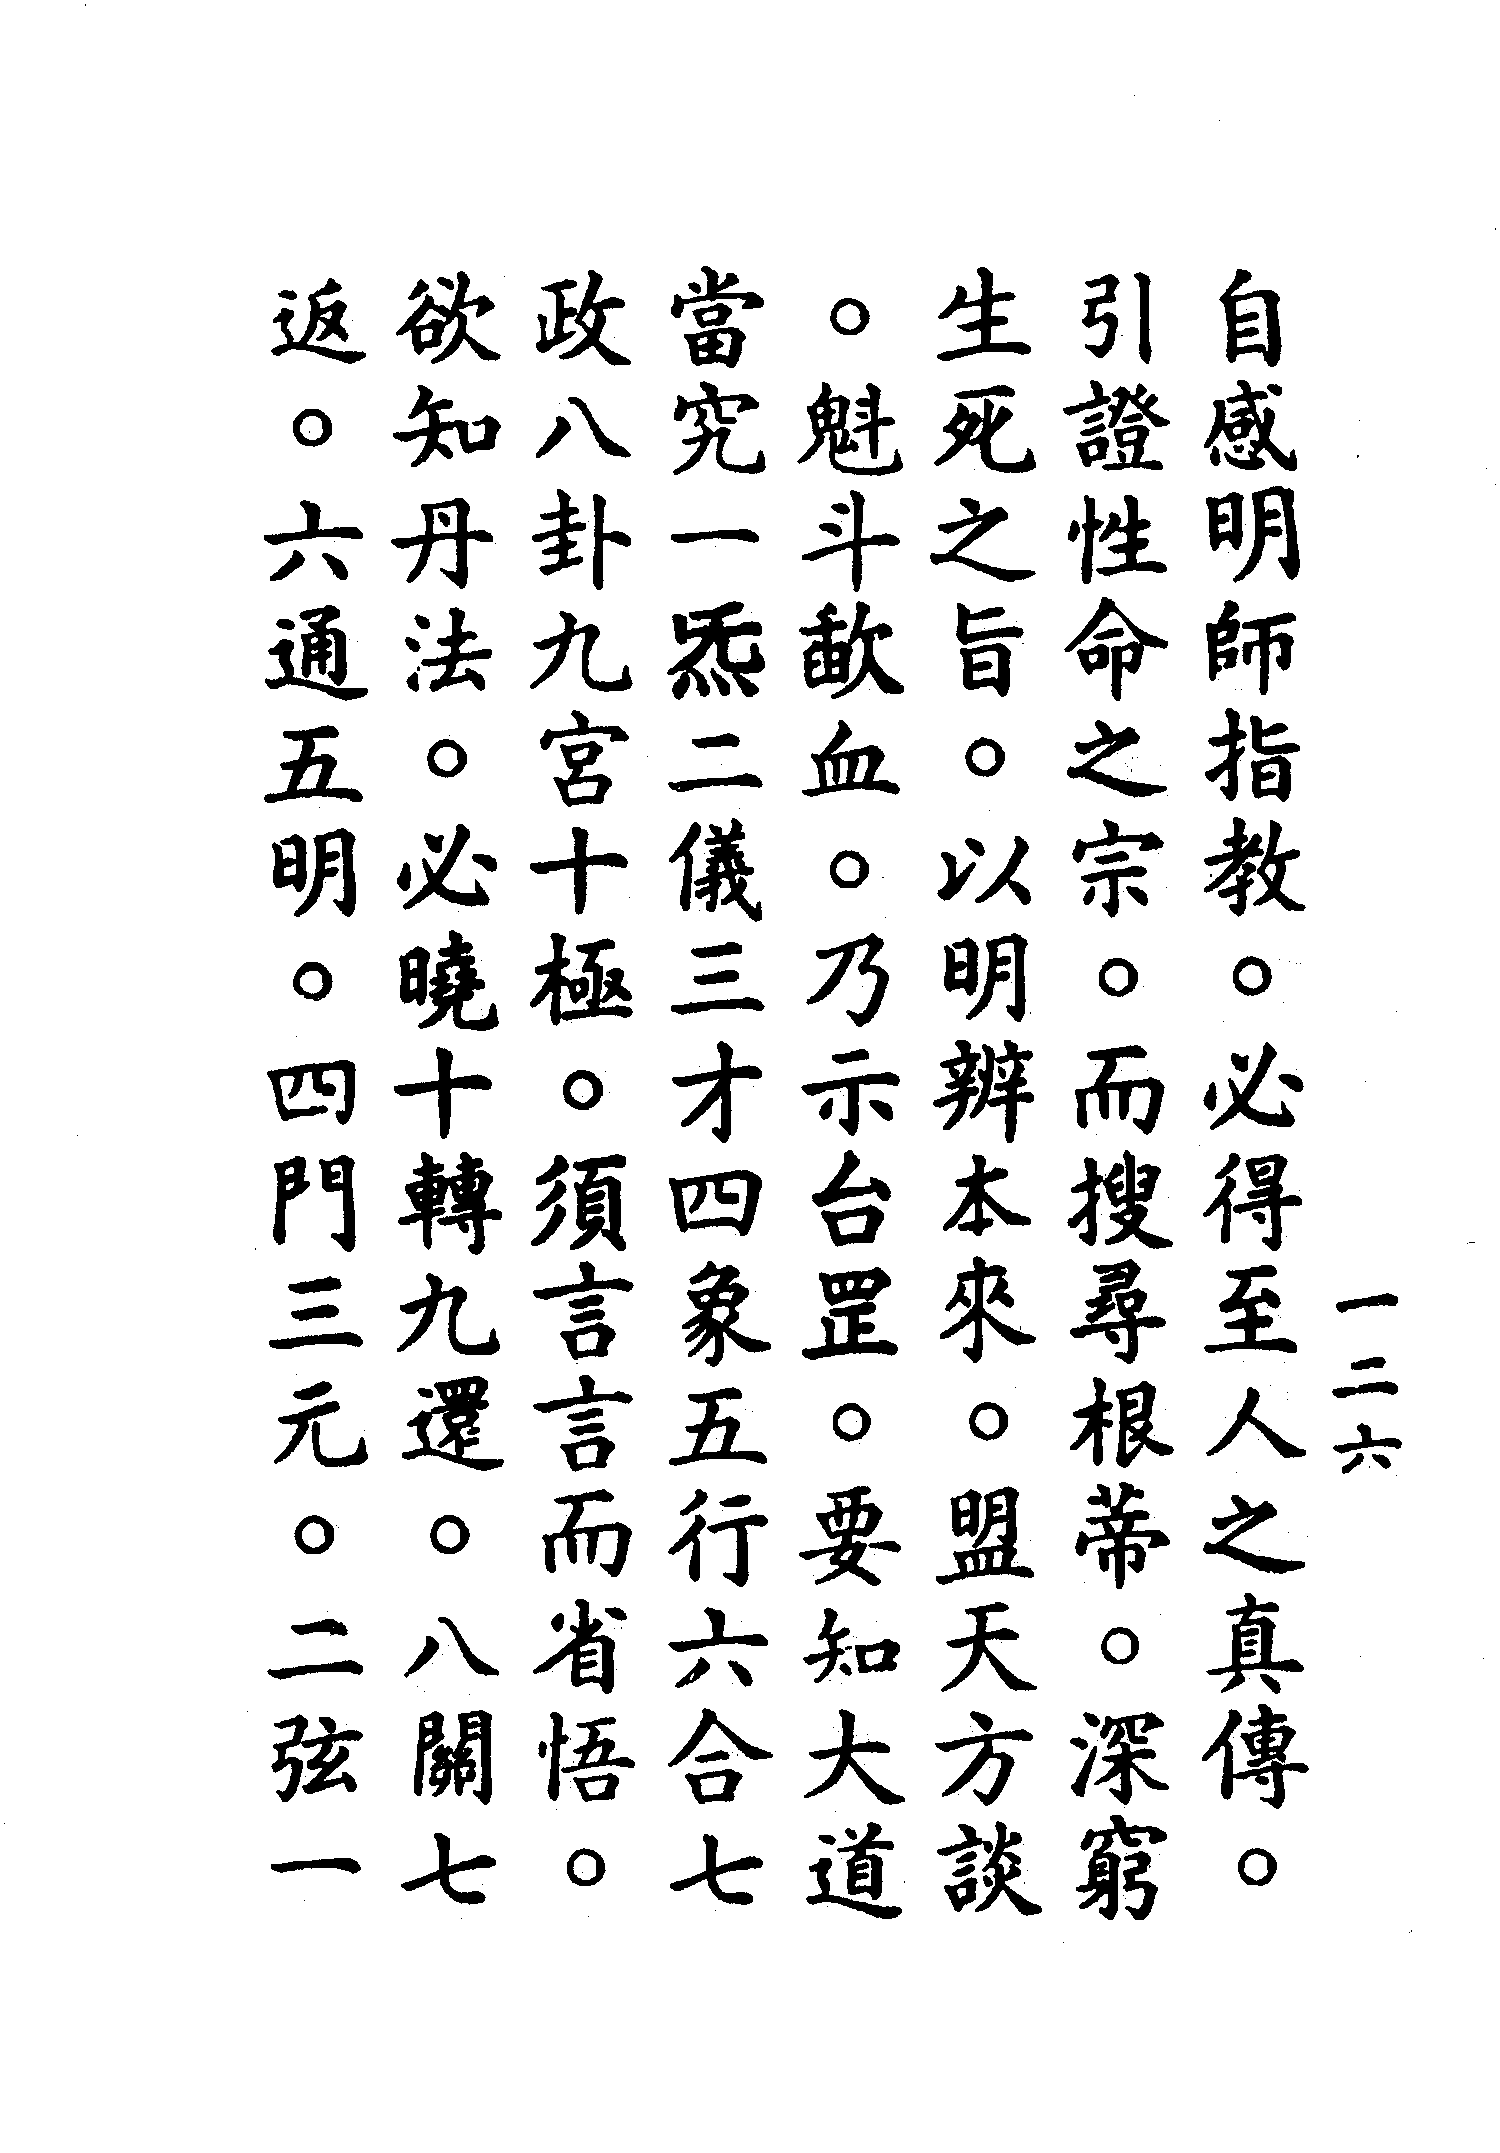 自感明師指教。必得至人之真傳。
引證性命之宗。而搜尋根蒂。深窮
生死之旨。以明辨本來。盟天方談
。魁斗歃血。乃示台罡。要知大道
當究一炁二儀三才四象五行六合七
政八卦九宮十極。須言言而省悟。
欲知丹法。必曉十轉九還。八關七
返。六通五明。四門三元。二弦一
一二六